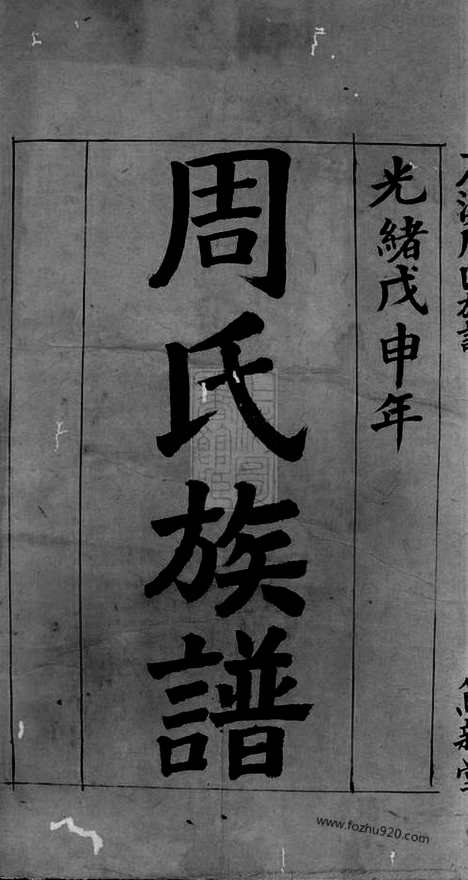 光緒戊申年
周氏族譜
www.fozhu920.com